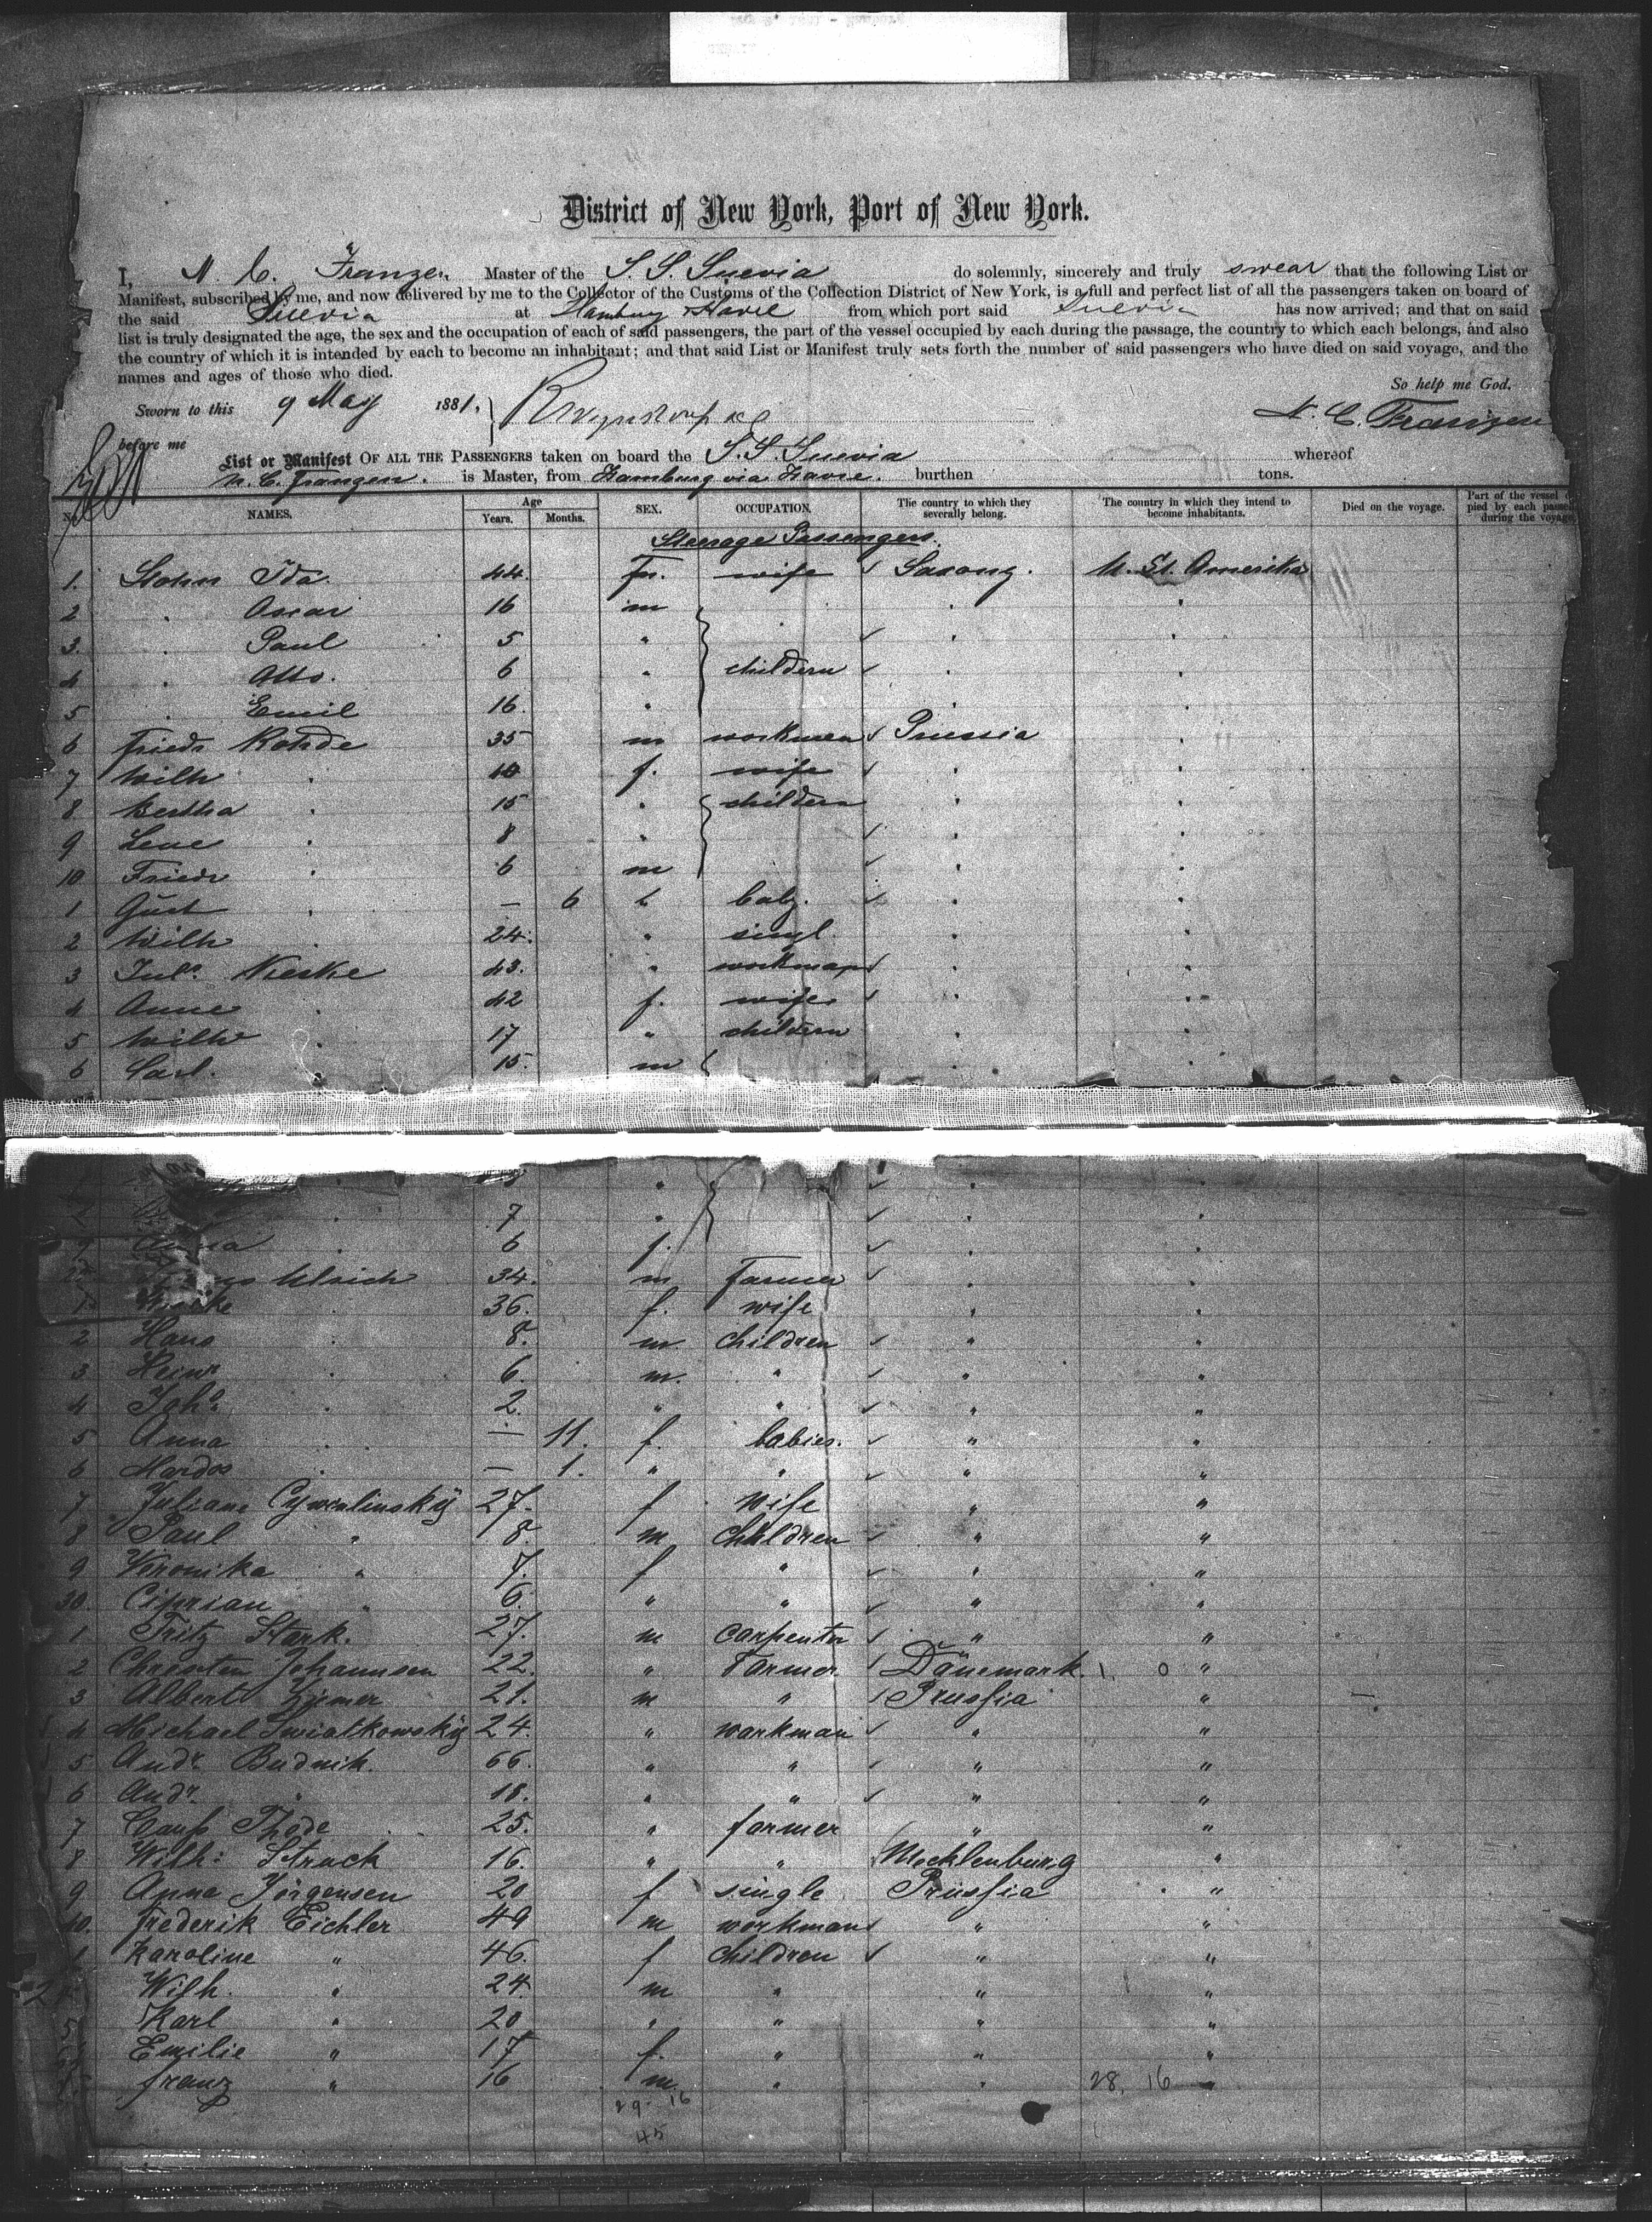 District of New York, Port of New York.
I, N. C. Franzen Master of the S. S. Suevia do solemnly, sincerely and truly swear that the following List or
Manifest, subscribed by me, and now delivered by me to the Collector of the Customs of the Collection District of New York, is a full and perfect list of all the passengers taken on board of
the said Suevia at Hamburg Havre from which port said Suevia has now arrived; and that on said
list is truly designated the age, the sex and the occupation of each of said passengers, the part of the vessel occupied by each during the passage, the country to which each belongs, and also
the country of which it is intended by each to become an inhabitant; and that said List or Manifest truly sets forth the number of said passengers who have died on said voyage, and the
names and ages of those who died.
So help me God.
Sworn to this 9 May 1881. N. C. Franzen
before me
List or Manifest OF ALL THE PASSENGERS taken on board the S. S. Suevia whereof
N. C. Franzen. is Master, from Hamburg via Havre. burthen tons.
NAMES. Age Years. Months. SEX. OCCUPATION. The country to which they severally belong. The country in which they intend to become inhabitants. Died on the voyage. Part of the vessel
during the voyage
Steerage Passengers.
1. Ida. 44. Fm. wife Saxony. U. St. Amerika
2 " Oscar 16 m "
3. " Paul 5 " "
4 " Otto. 6 " children "
5 " Emil 16. " "
6 Friedr Rohde 35 m workmen Prussia "
7 Wilh " f. wife " "
8 Bertha " 15 " children " "
9 Lene " 8 " " "
10 Friedr " 6 m " "
1 Gust " — 6 baby. " "
2 Wilh " 24. " singl " "
3 Juls. Kieske 43. " workman " "
4 Anne " 42 f. wife " "
5 Wilh " 17 " children " "
6 Carl. 15. m " "
7 " "
6 f. " "
Ulrich 34. m Farmer " "
1. " 36. f. wife " "
2 Hans " 8. m children " "
3 Heinr " 6. m. " " "
4 Joh. " 2. " " " "
5 Anna " — 11. f. babies. " "
6 " — 1. " " " "
7 Juliane 27. f wife " "
8 Paul " 8. m children " "
9 Veronika " 7. f " " "
30. Ciprian " 6. " " " "
1 Fritz Stark. 27. m carpenter " "
2 Christen Johannsen 22. " Farmer Dänemark. "
3 Albert 21. m " Prussia "
4 Michael Swiatkowskÿ 24. " workman " "
5 Andr. Budnik. 66. " " " "
6 Andr. " 18. " " " "
7 Thode 25. " farmer " "
8 Wilh: Struck 16. " " Mecklenburg "
9 Anna Jörgensen 20 f single Prussia "
40. Frederik Eichler 49 m workman " "
1 Karoline " 46. f children " "
Wilh. " 24. m " " "
Karl " 20 " " " "
Emilie " 17 f. " " "
Franz " 16 m. " " 28. 16 "
29- 16
45